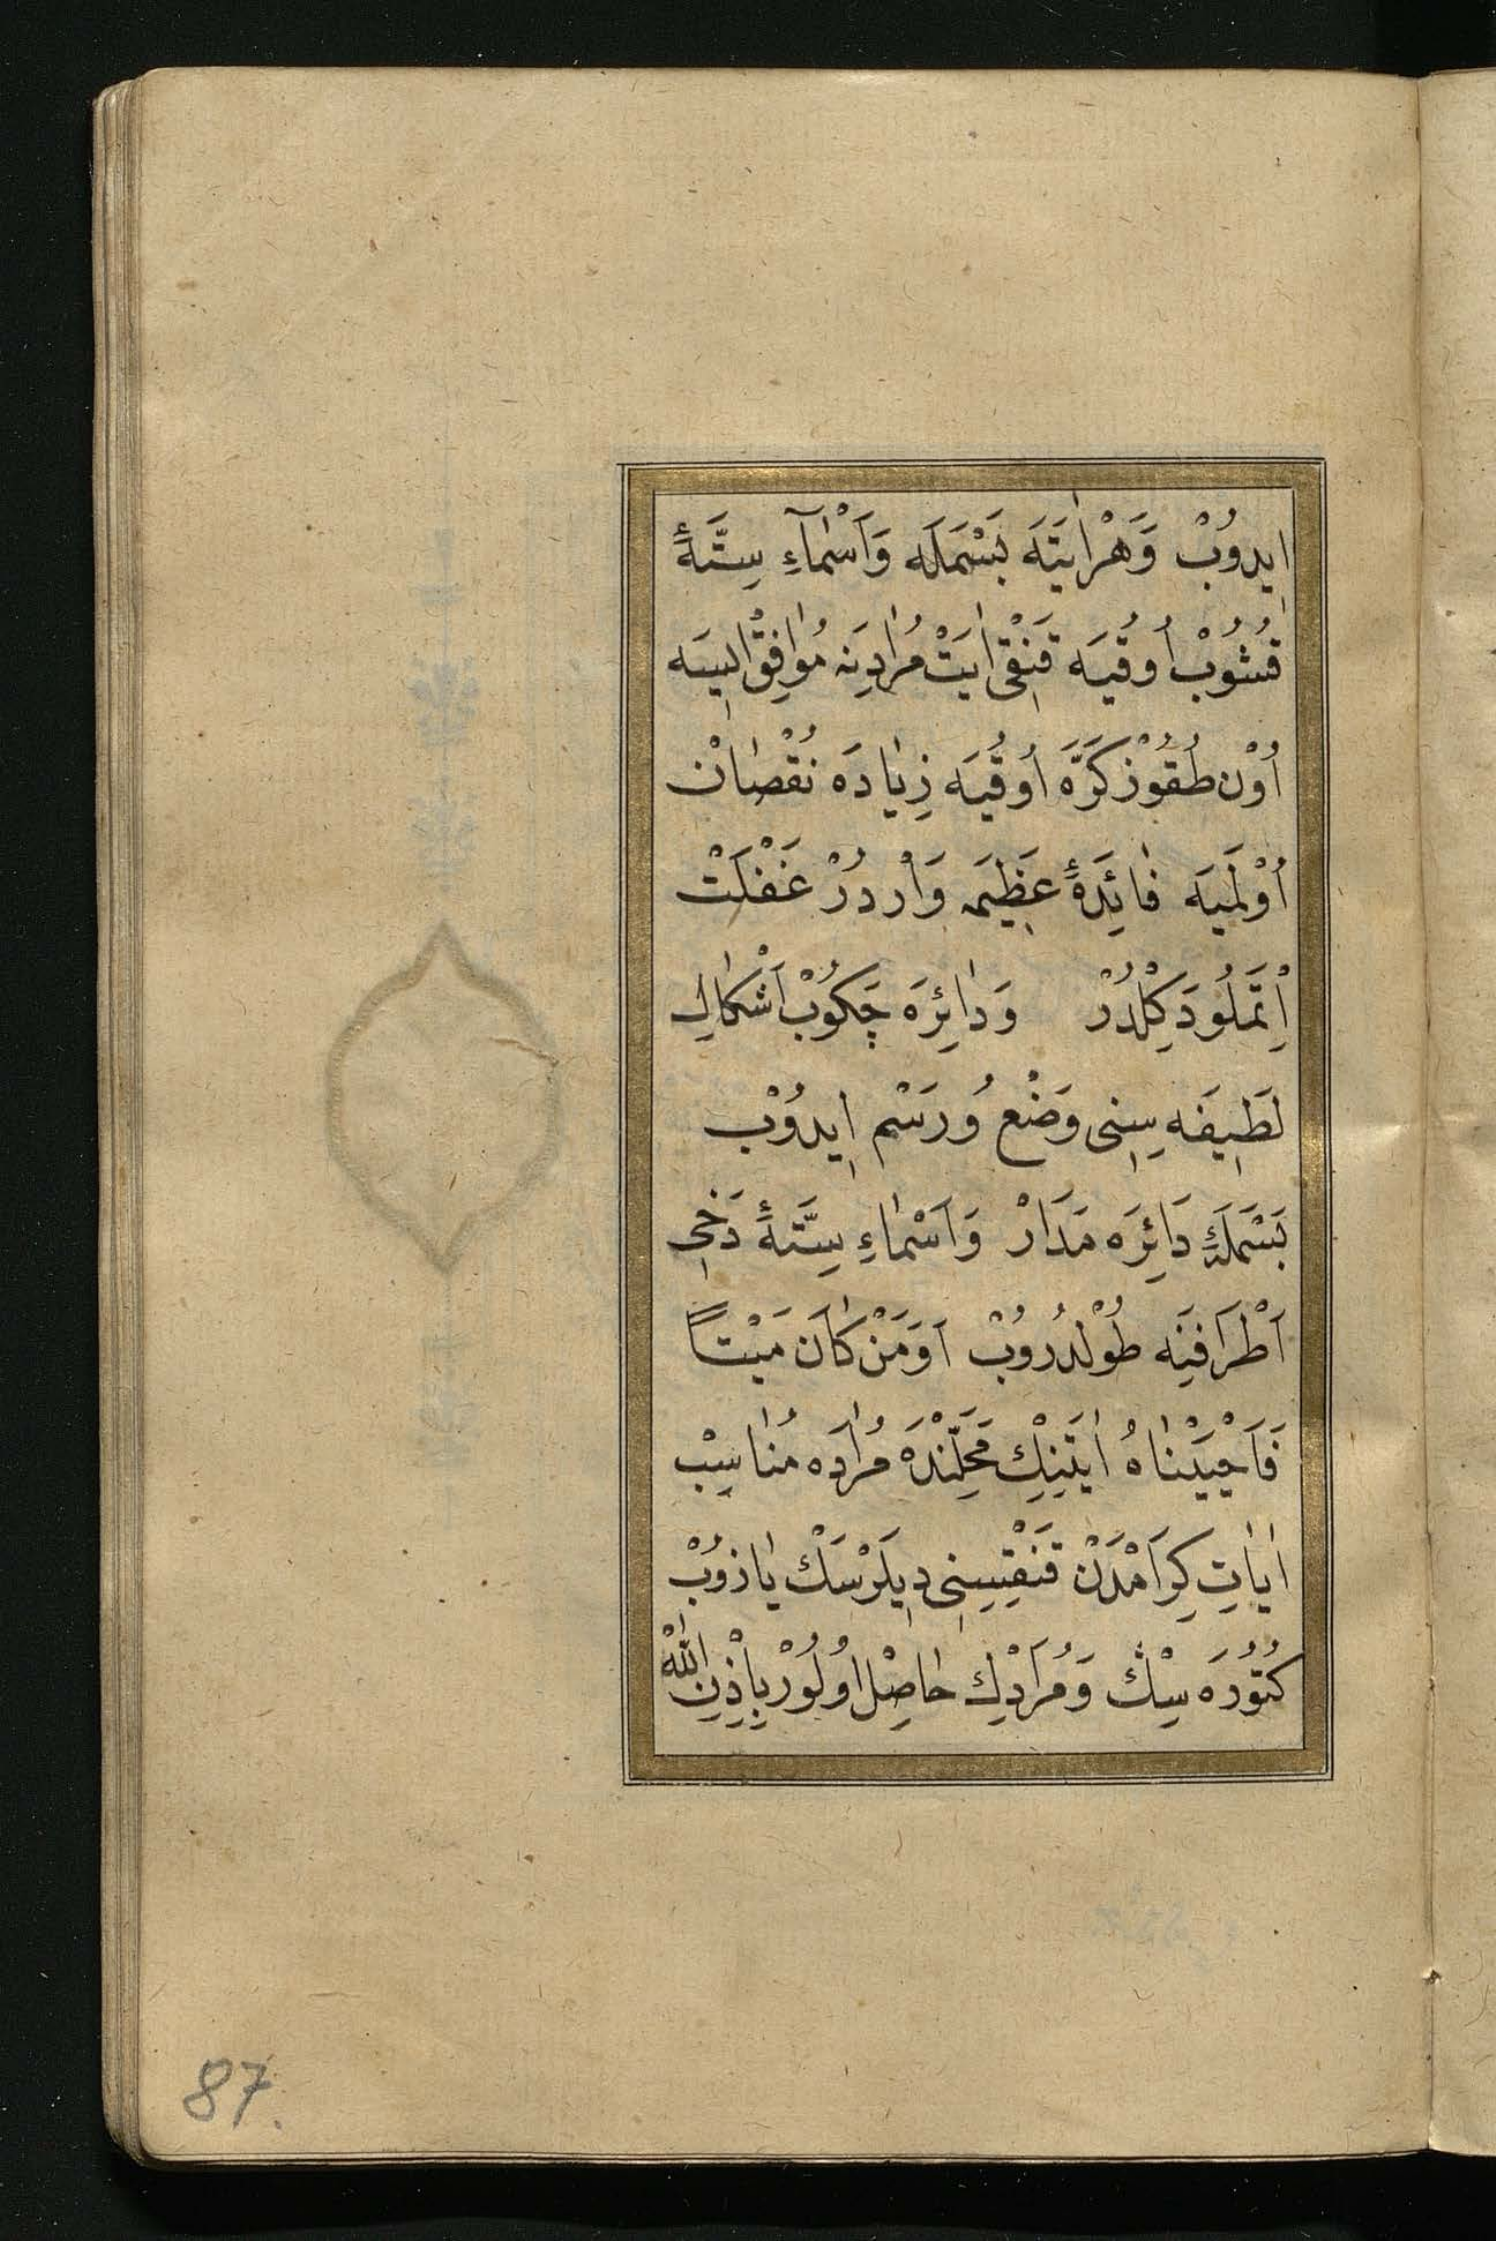 اِيدُوبْ وَهَرْ اٰيَتَه بَسْمَلَه وَاَسْمَآءِ سِتَّهٔ
قُشُوبْ اُوقُيَه قَنْقِى اٰيَتْ مُرٰادِيَنه مُوٰافِقْ اِيسَه
اُوْن طُقُوزْ كَرَّهَ اُوقُيَه زِيٰادَه نُقْصٰانْ
اُوْلَميَه فٰائِدَهٔ عَظِيمَه وَارْ دُرْ غَفْلَتْ
اِتْمَلُو دَكِلْدُرْ وَدٰائِرَه چَكُوبْ اَشْكٰالِ
لَطِيفَه سِنِى وَضْع وُرَسْم اِيدُوبْ
بَسْمَلَهٔ دَائِرَه مَدَارْ وَاَسْمٰاءِ سِتَّهٔ دَخِى
اَطْرَافَينَه طُولْدُرُوبْ اَوَمَنْ كٰانَ مَيْتاً
فَاَحْيَيْنٰاهُ اٰيَتِنِكْ مَحَلِّنْدَه مُرٰادَه مُنٰاسِبْ
اٰيٰاتِ كِرَامْدَنْ قَنْقِيسِنِى دِيلَرْسَكْ يٰازُوبْ
كُتُورَه سِڭْ وَمُرَادْلِكْ حٰاصِلْ اُولُورْ بِاِذْنِ اللّٰهْ
87.